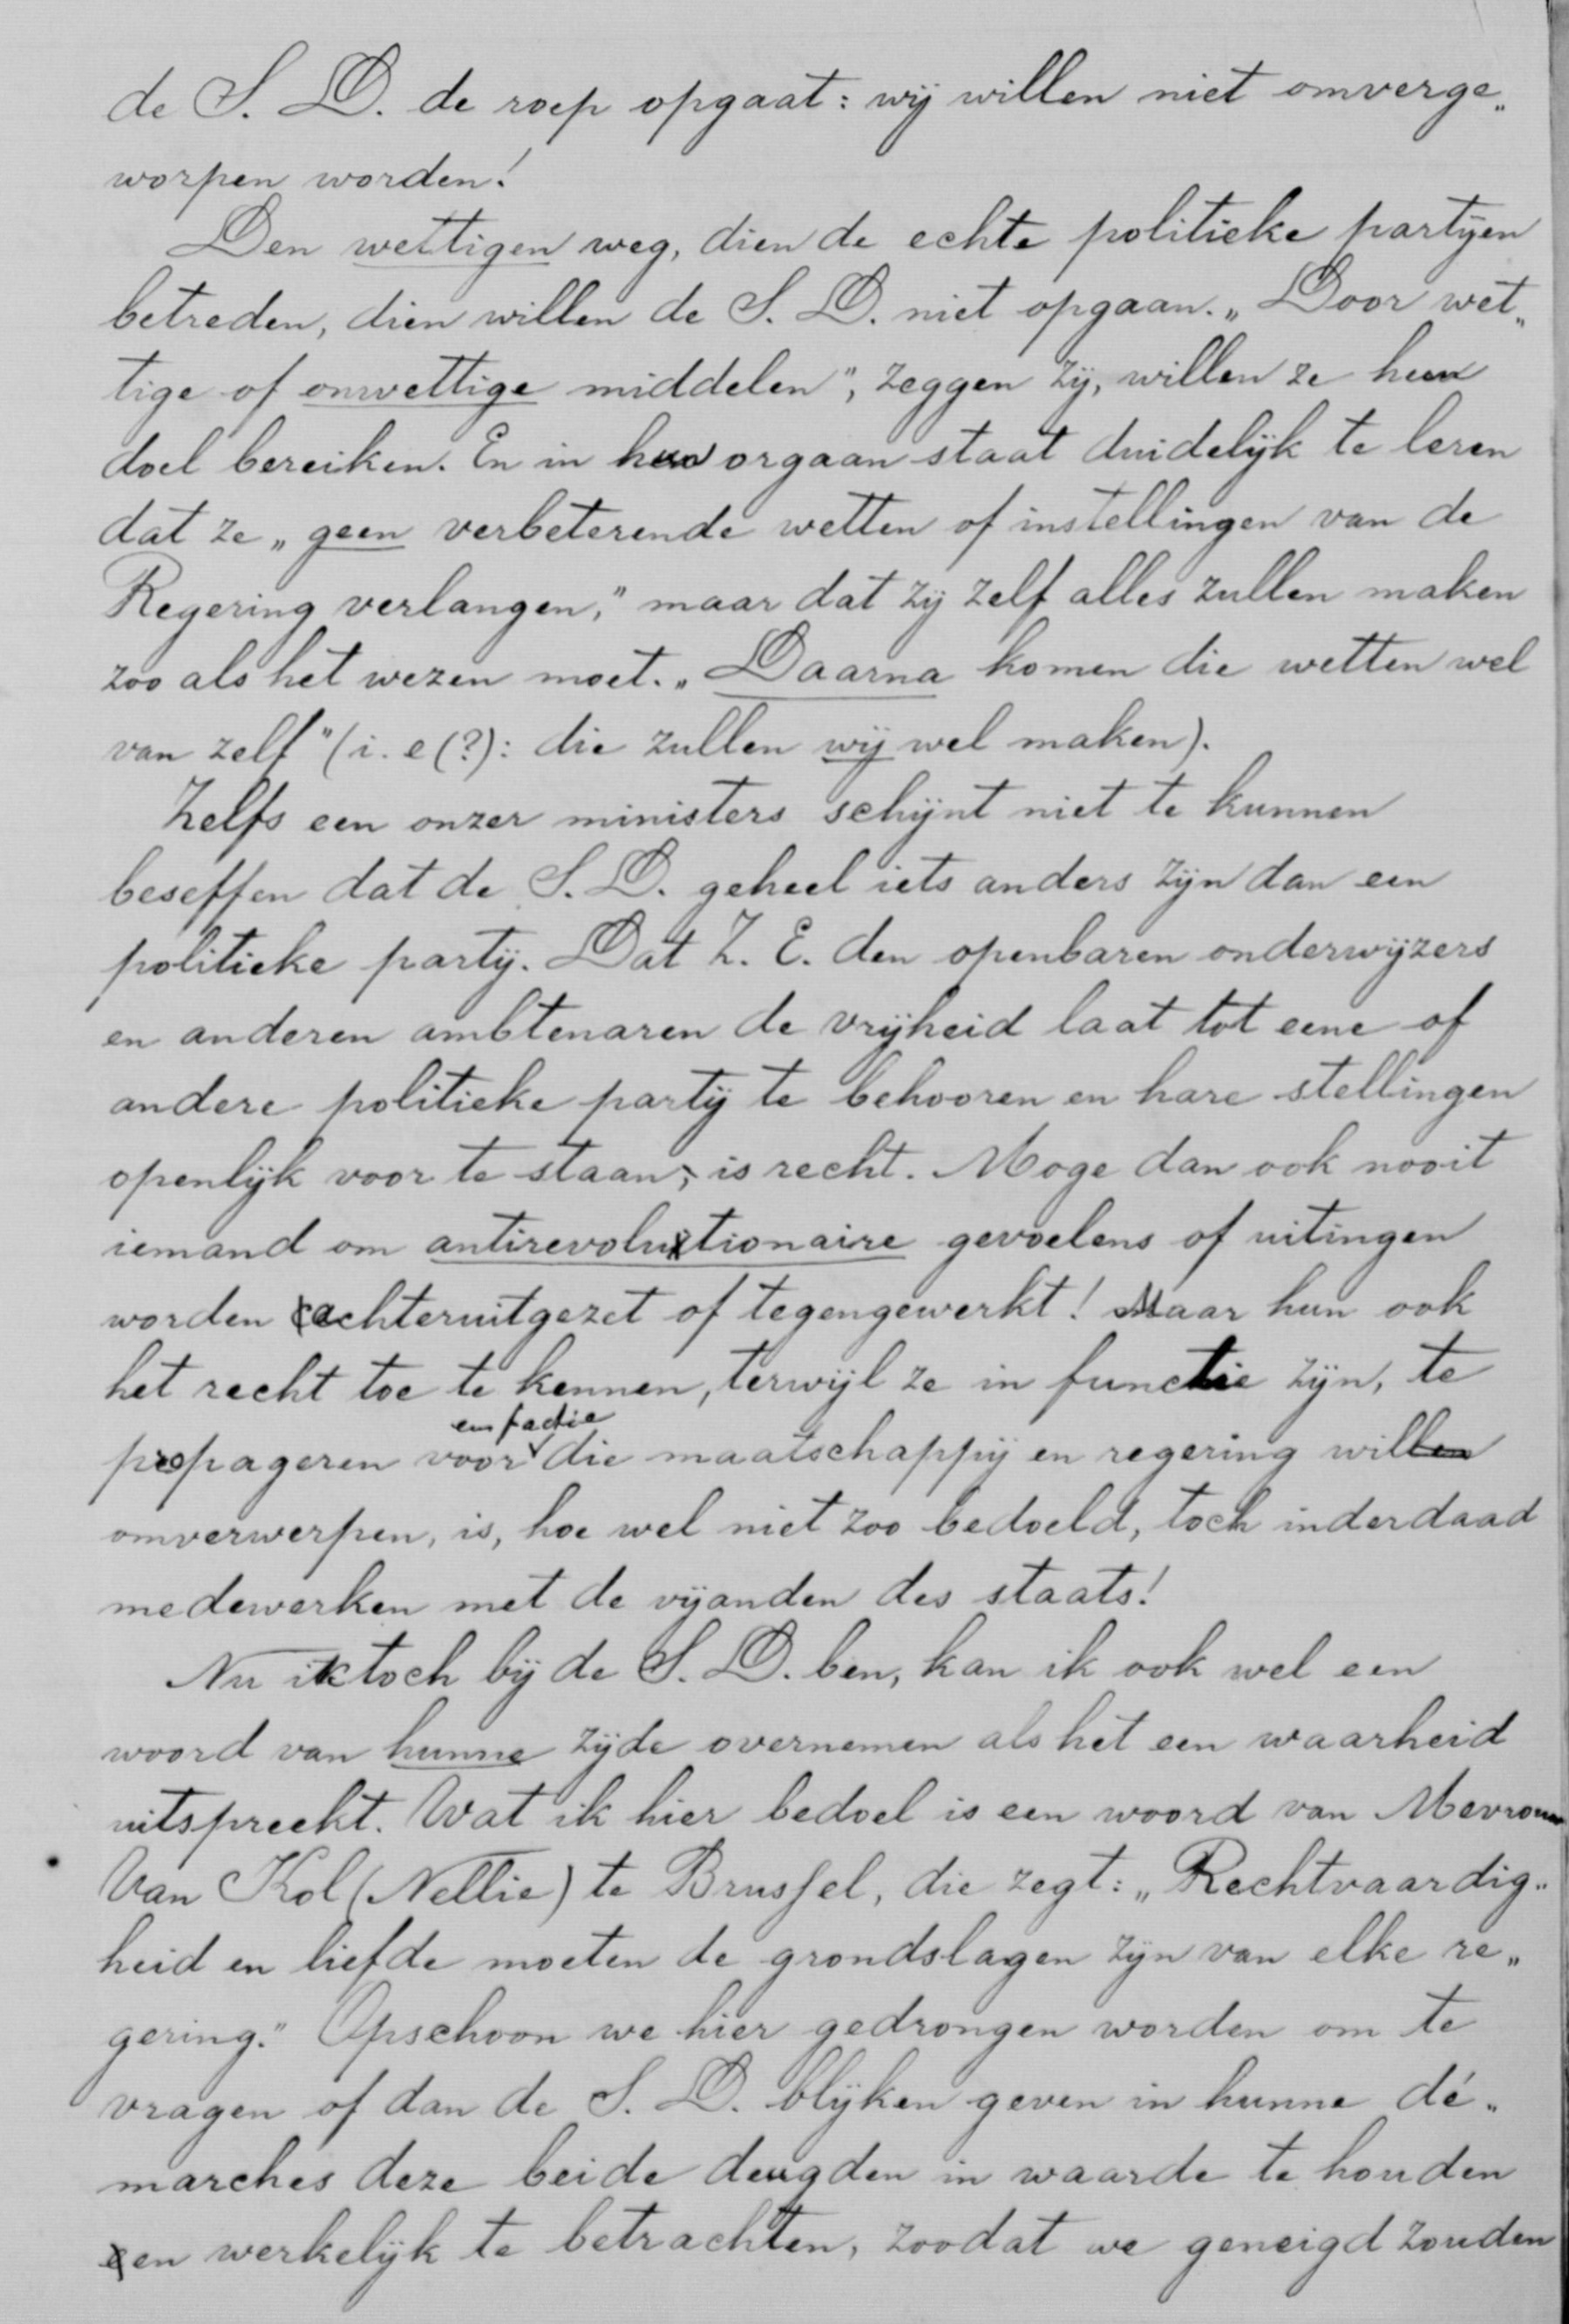 de S. D. de roep opgaat: wij willen niet omverge„
worpen worden!
Den wettigen weg, dien de echte politieke partijen
betreden, dien willen de S. D. niet opgaan. „Door wet„
tige of onwettige middelen", zeggen zij, willen ze hun
doel bereiken. En in hun orgaan staat duidelijk te lezen
dat ze „geen verbeterende wetten of instellingen van de
Regering verlangen," maar dat zij zelf alles zullen maken
zoo als het wezen moet. „Daarna komen die wetten wel
van zelf" (i. e (?): die zullen wij wel maken).
Zelfs een onzer ministers schijnt niet te kunnen
beseffen dat de S. D. geheel iets anders zijn dan een
politieke partij. Dat Z. E. den openbaren onderwijzers
en anderen ambtenaren de vrijheid laat tot eene of
andere politieke partij te behooren en hare stellingen
openlijk voor te staan, is recht. Moge dan ook nooit
iemand om antirevolutionaire gevoelens of uitingen
worden achteruitgezet of tegengewerkt! Maar hun ook
het recht toe te kennen, terwijl ze in functie zijn, te
een factie
propageren voor die maatschappij en regering willen
omverwerpen, is, hoe wel niet zoo bedoeld, toch inderdaad
medewerken met de vijanden des staats!
Nu ik toch bij de S. D. ben, kan ik ook wel een
woord van hunne zijde overnemen als het een waarheid
uitspreekt. Wat ik hier bedoel is een woord van Mevrouw
Van Kol (Nellie) te Brussel, die zegt: „Rechtvaardig„
heid en liefde moeten de grondslagen zijn van elke re„
gering." Opschoon we hier gedrongen worden om te
vragen of dan de S. D. blijken geven in hunne dé„
marches deze beide deugden in waarde te houden
en werkelijk te betrachten, zoodat we geneigd zouden